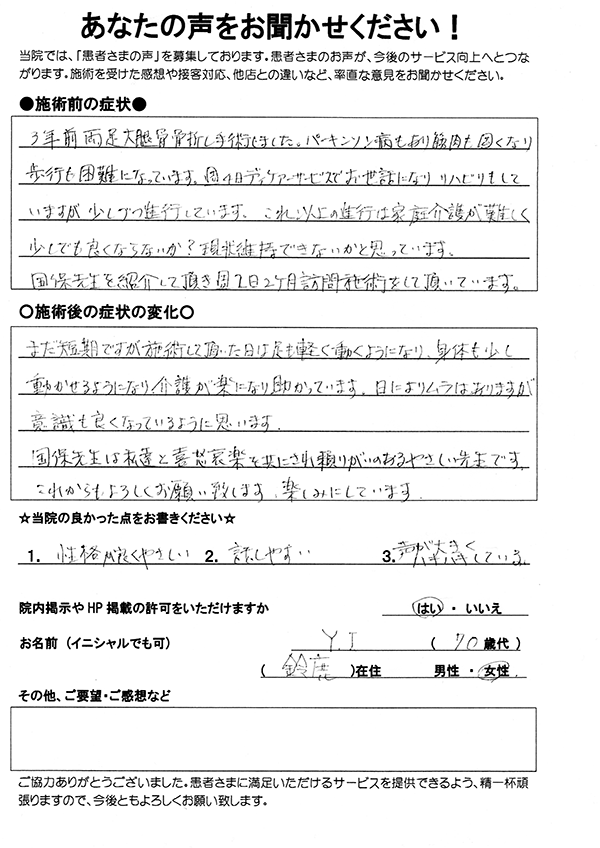 あなたの声をお聞かせください！
当院では、「患者さまの声」を募集しております。患者さまのお声が、今後のサービス向上へとつな
がります。施術を受けた感想や接客対応、他店との違いなど、率直な意見をお聞かせください。
●施術前の症状●
3年前両足大腿骨骨折し手術をしました。パーキンソン病もあり筋肉も固くなり
歩行も困難になっています。週4日デイケアーサービスでお世話になりリハビリもして
いますが少しづつ進行しています。これ以上の進行は家庭介護が難しく
少しでも良くならないか？現状維持できないかと思っています。
国保先生を紹介して頂き週2日2ヶ月訪問施術をして頂いています。
〇施術後の症状の変化〇
まだ短期ですが施術して頂いた日は足も軽く動くようになり、身体も少し
動かせるようになり介護が楽になり助かっています。日によりムラはありますが
意識も良くなっているように思います。
国保先生は私達と喜怒哀楽を共にされ頼りがいのあるやさしい先生です。
これからもよろしくお願い致します。楽しみにしています。
☆当院の良かった点をお書きください☆
1. 性格が良くやさしい 2. 話しやすい 3. 声が大きくハキハキしている。
院内掲示やHP掲載の許可をいただけますか はい・いいえ
お名前（イニシャルでも可） Y.I （ 70 歳代）
（ 鈴鹿 ）在住 男性・女性
その他、ご要望・ご感想など
ご協力ありがとうございました。患者さまに満足いただけるサービスを提供できるよう、精一杯頑
張りますので、今後ともよろしくお願い致します。